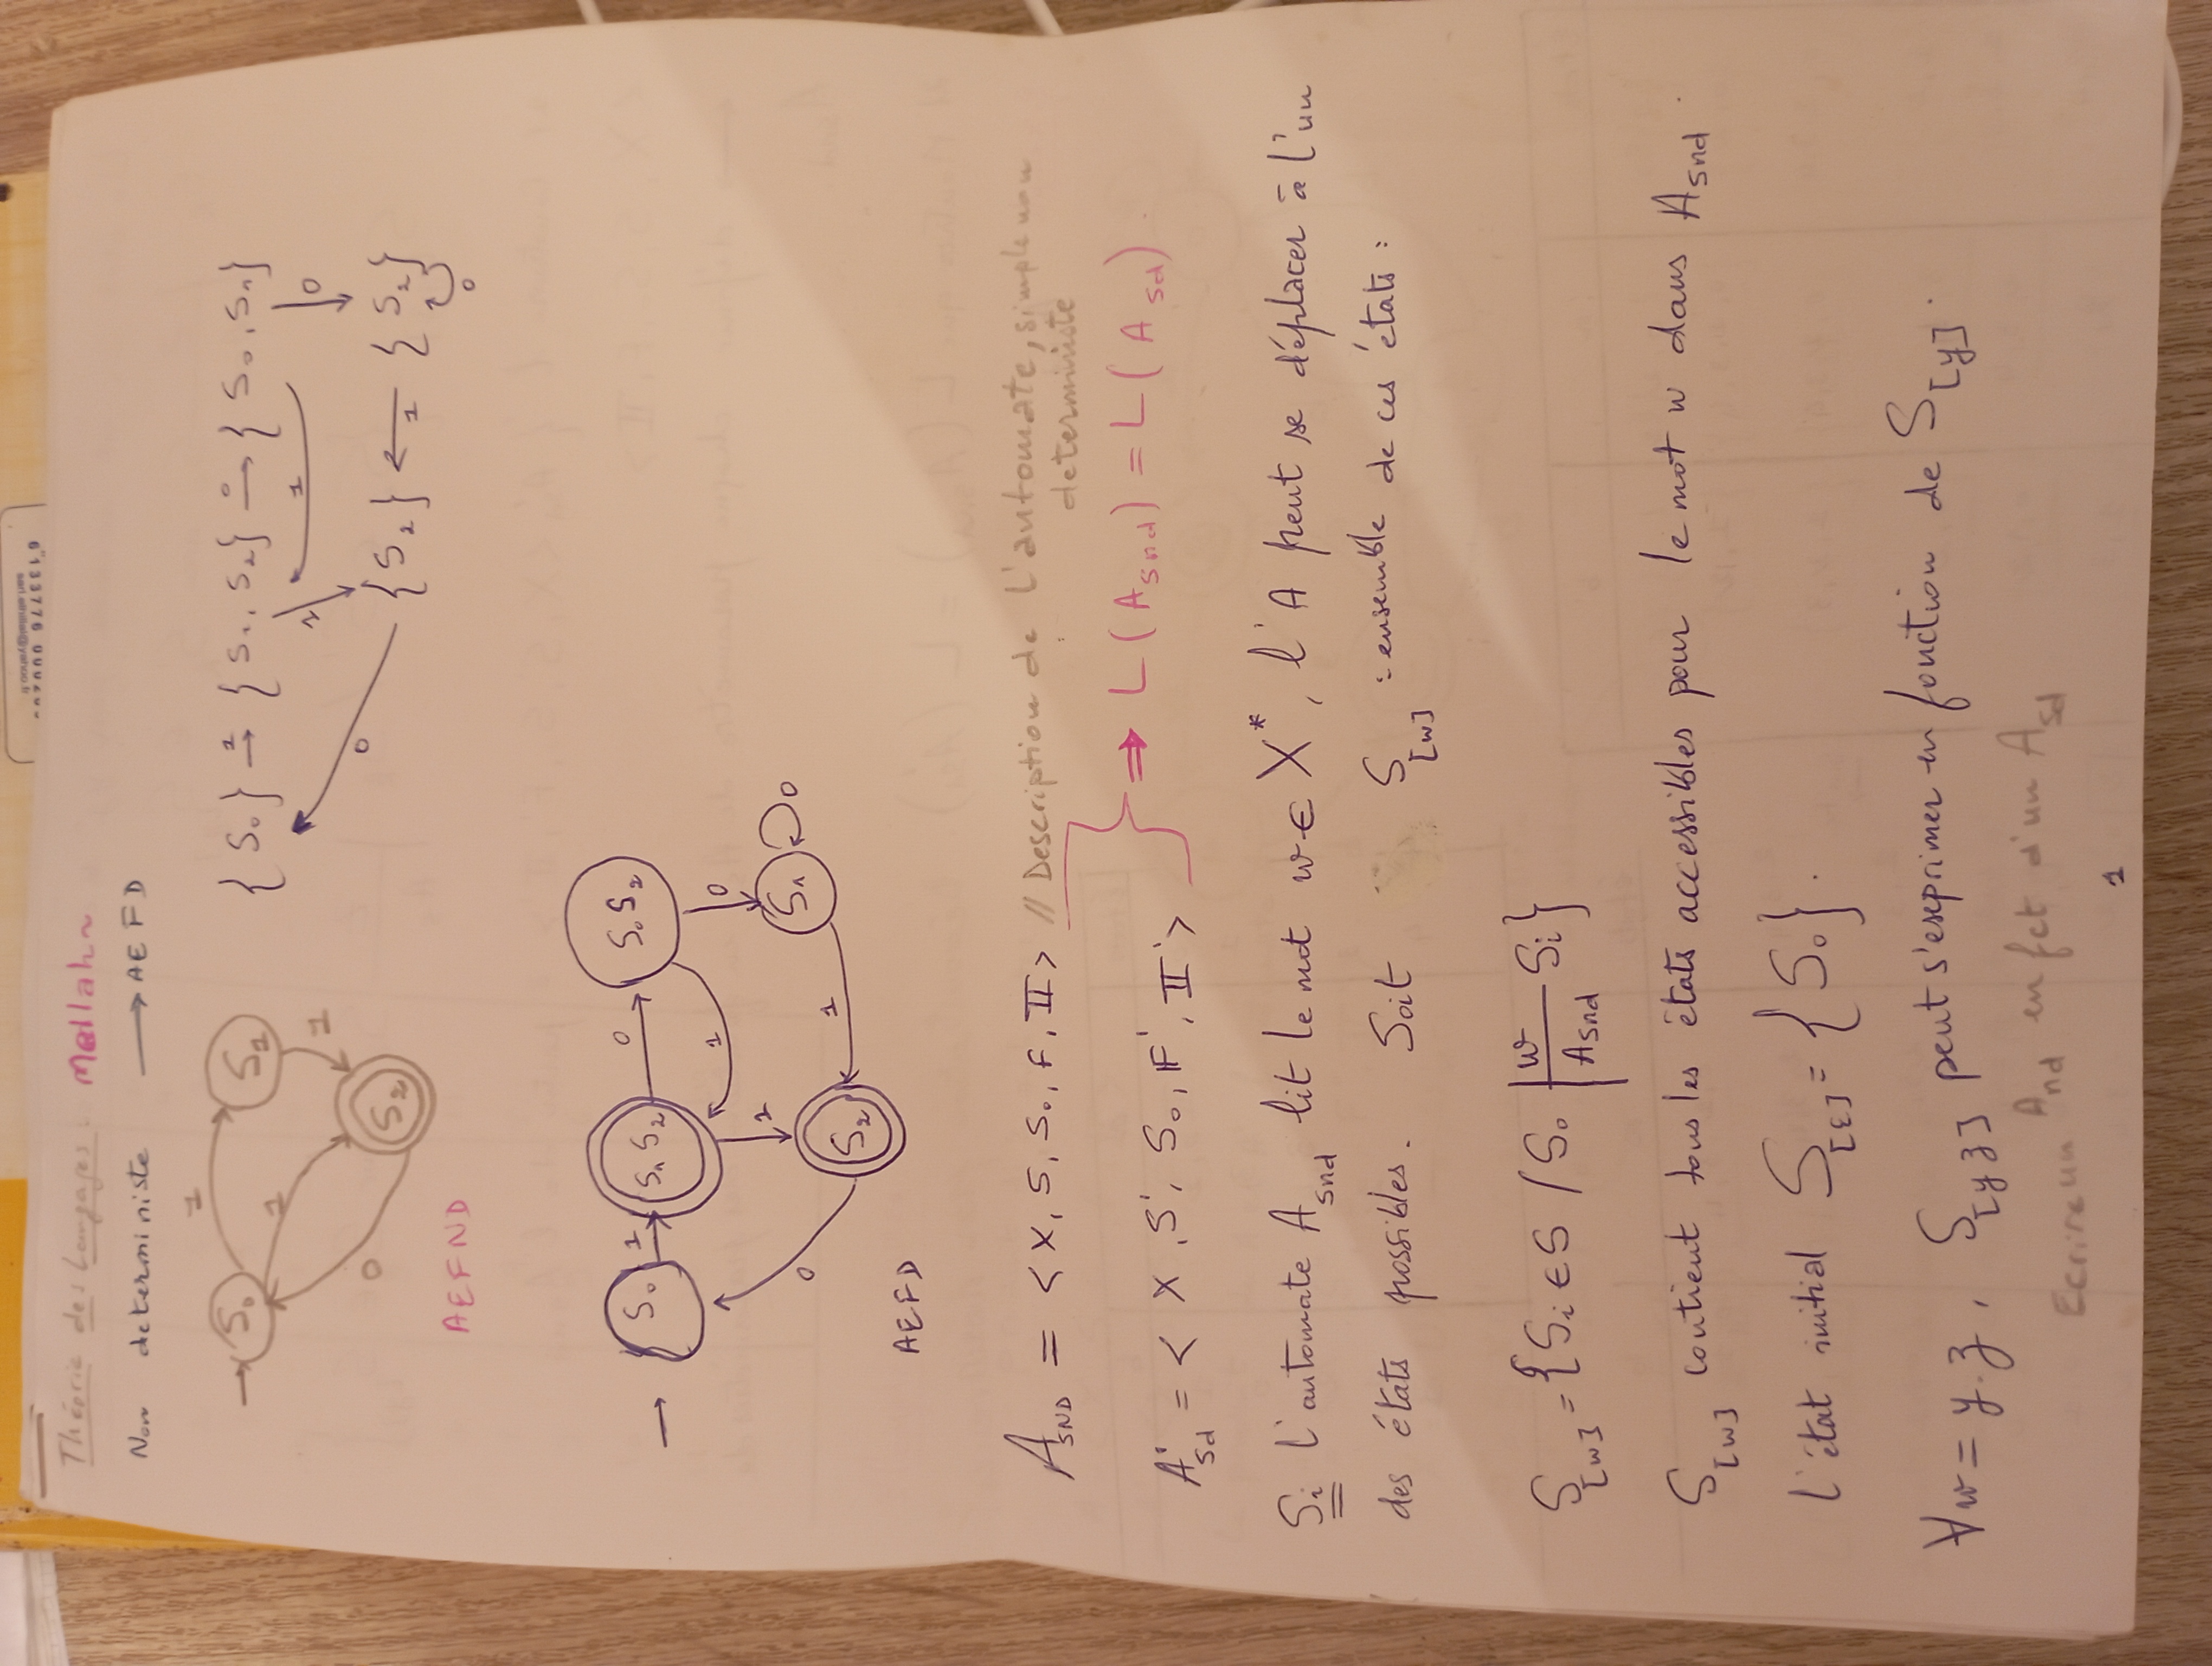 6133776 0002
sarl.alhillal@yahoo.fr
Théorie des Langages : Mellah
Non deterministe → AEFD
1
S₀ S₁
1
1
0
S₂
AEFND
{S₀} →1 {S₁, S₂} →0 {S₀, S₁}
1 1 0
0
{S₂} ←1 {S₂}
0
→ S₀ 1 S₁ S₂ 0 S₀ S₂
1 0
1
0 S₁ 0
1
S₂
AEFD
A_SND = < X, S, S₀, F, II > // Description de l'automate, simple non
deterministe
⇒ L(A_snd) = L(A_sd).
A'_sd = < X, S', S₀, F', II' >
Si l'automate A_snd lit le mot w ∈ X*, l'A peut se déplacer à l'un
des états possibles. Soit S_[w] : ensemble de ces états :
S_[w] = {Si ∈ S / S₀ |w/A_snd Si}
S_[w] contient tous les états accessibles pour le mot w dans A_snd.
l'état initial S_[ε] = {S₀}.
∀w = y.z, S_[yz] peut s'exprimer en fonction de S_[y].
Ecrire un A_nd en fct d'un A_sd
1